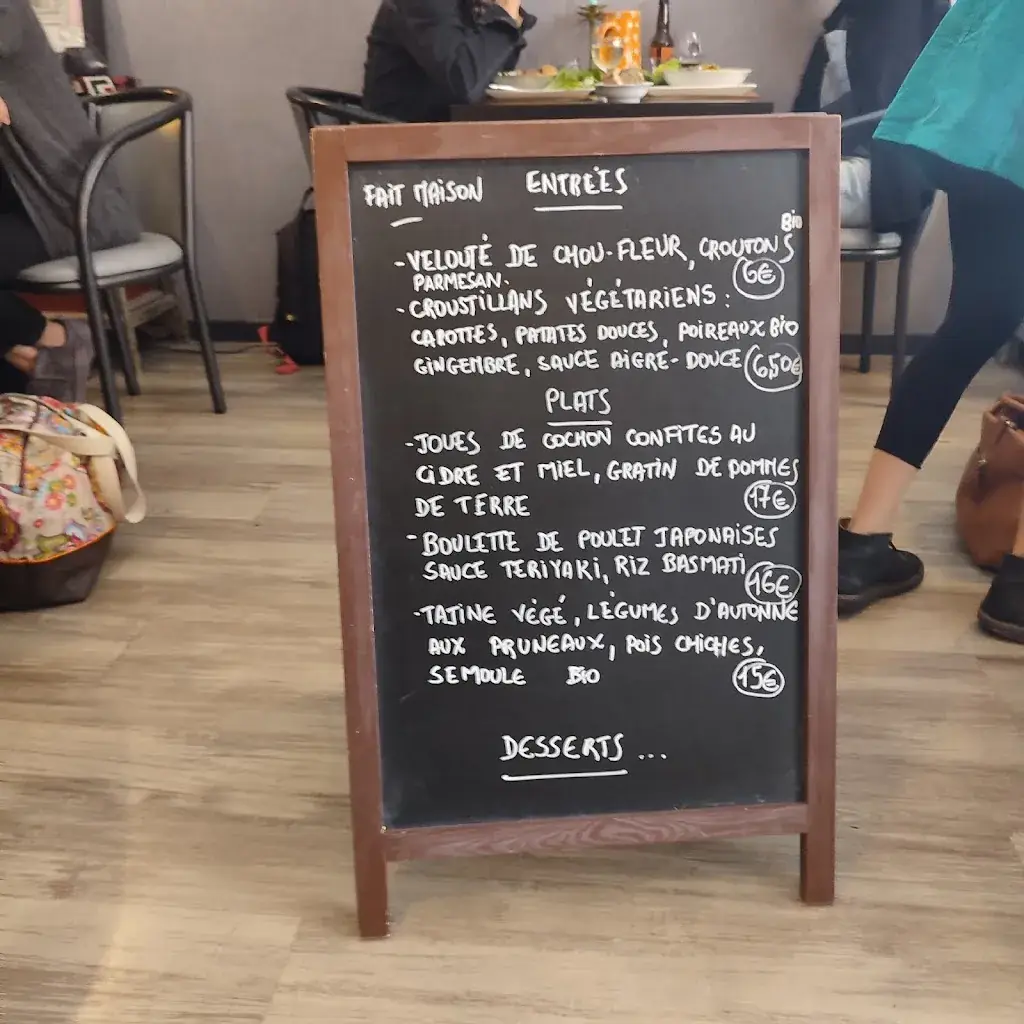 FAIT MAISON ENTRÉES
Bio
- VELOUTÉ DE CHOU-FLEUR, CROUTONS
PARMESAN. 6€
- CROUSTILLANS VÉGÉTARIENS :
CAROTTES, PATATES DOUCES, POIREAUX BIO
GINGEMBRE, SAUCE AIGRE-DOUCE 6,50€
PLATS
- JOUES DE COCHON CONFITES AU
CIDRE ET MIEL, GRATIN DE POMMES
DE TERRE 17€
- BOULETTE DE POULET JAPONAISES
SAUCE TERIYAKI, RIZ BASMATI 16€
- TAJINE VÉGÉ, LÉGUMES D'AUTONNE
AUX PRUNEAUX, POIS CHICHES,
SEMOULE BIO 15€
DESSERTS ...